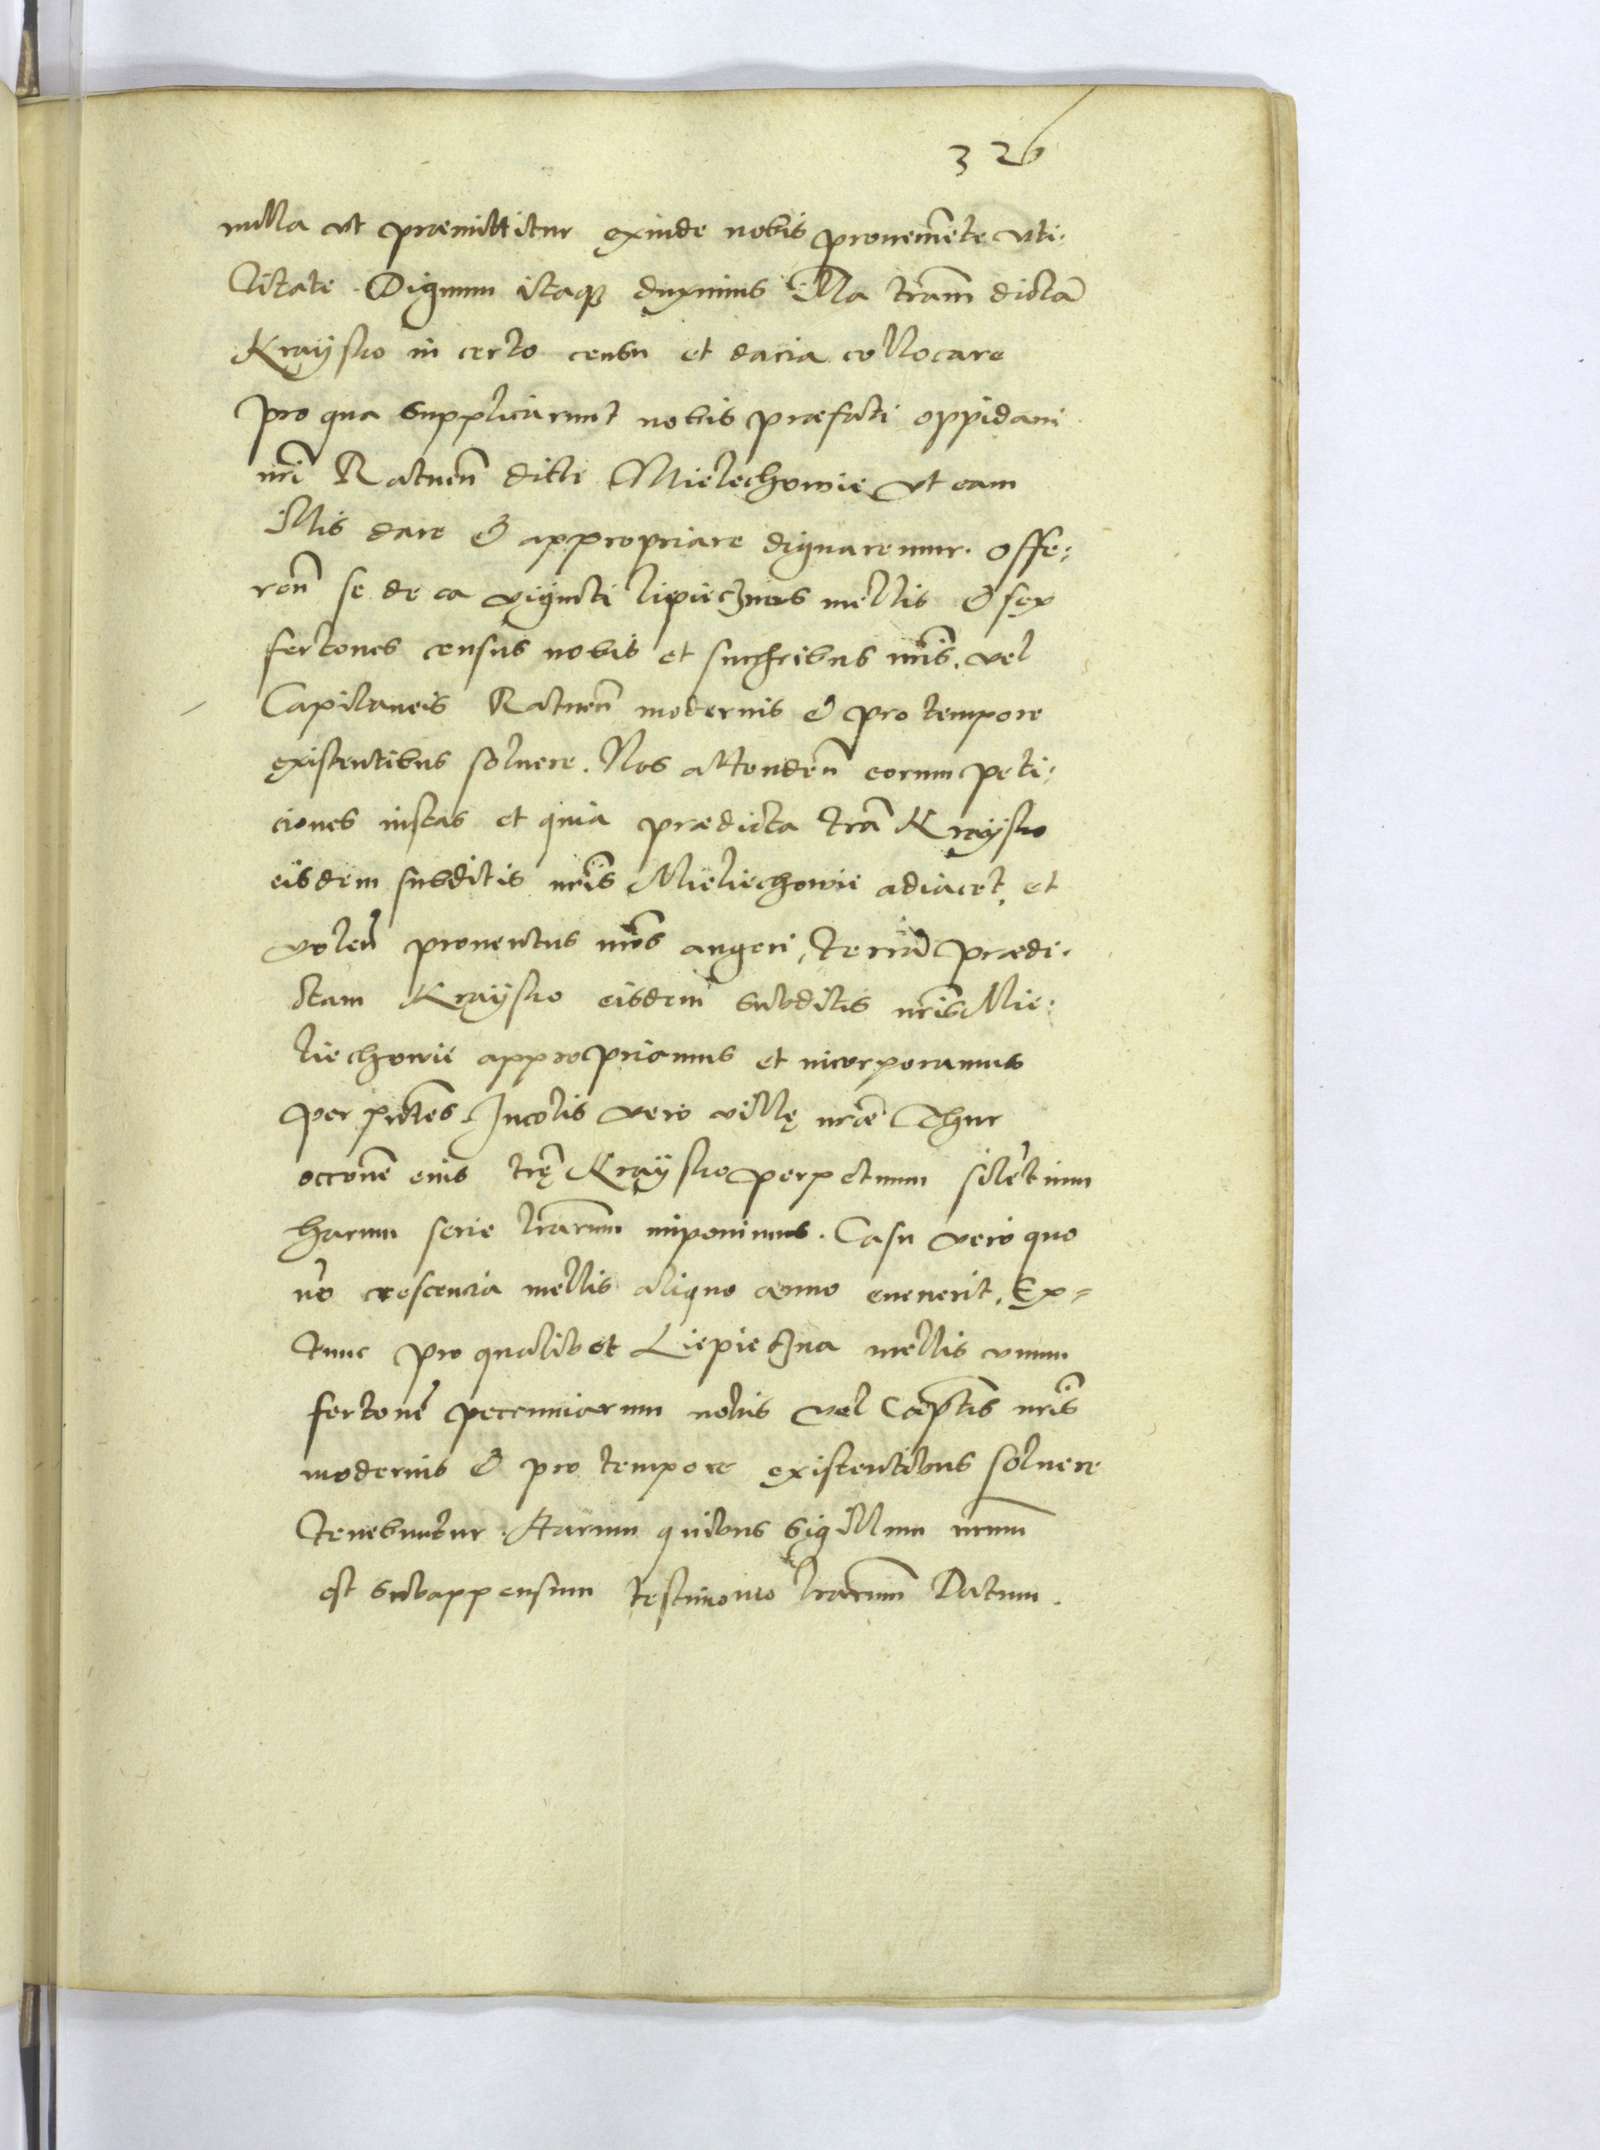 326
nulla ut præmittitur exinde nobis proveniēte uti:
litate. Digmum itaq; duximus illa trām̄ dictā
Krayſko in certo censu et dacia collocare
pro qua supplicarunt nobis præfati oppidani
nr̄i Ratnen̄ dicti Mielechowie ut eam
illis dare & appropriare dignaremur. Offe:
ren̄ se de ea viginti liepiecznas mellis & ſex
fertones cenſus nobis et ſuc̄cribus nr̄is. vel
Capitaneis Ratnen̄ modernis & pro tempore
existentibus ſoluere. Nos attenden̄ eorum peti:
ciones iustas et quia prædicta tr̄a Krayſko
eisdem ſubditis nr̄is Mieliechowie adiacet, et
volen̄ proventus nr̄os augeri, terrā prædi:
ctam Krayſko eisdem subditis nr̄is Mie:
liechowie appropriamus et incorporamus
per pn̄tes. Incolis vero villę nr̄æ Thur
occc̄onē eius trę̄ Krayſko perpetuum ſilētium
harum serie lrarum̄ imponimus. Casu vero quo
nō crescencia mellis aliquo anno euenerit, Ex=
tunc pro qualibet Liepiećzna mellis unum
fertonē pecuniarum nobis vel Cap̄tis nr̄is
modernis & pro tempore existentibus ſoluere
tenebuntur. Harum quibus sigillum nr̄um
est subappensum testimonio lrarum̄ Datum.